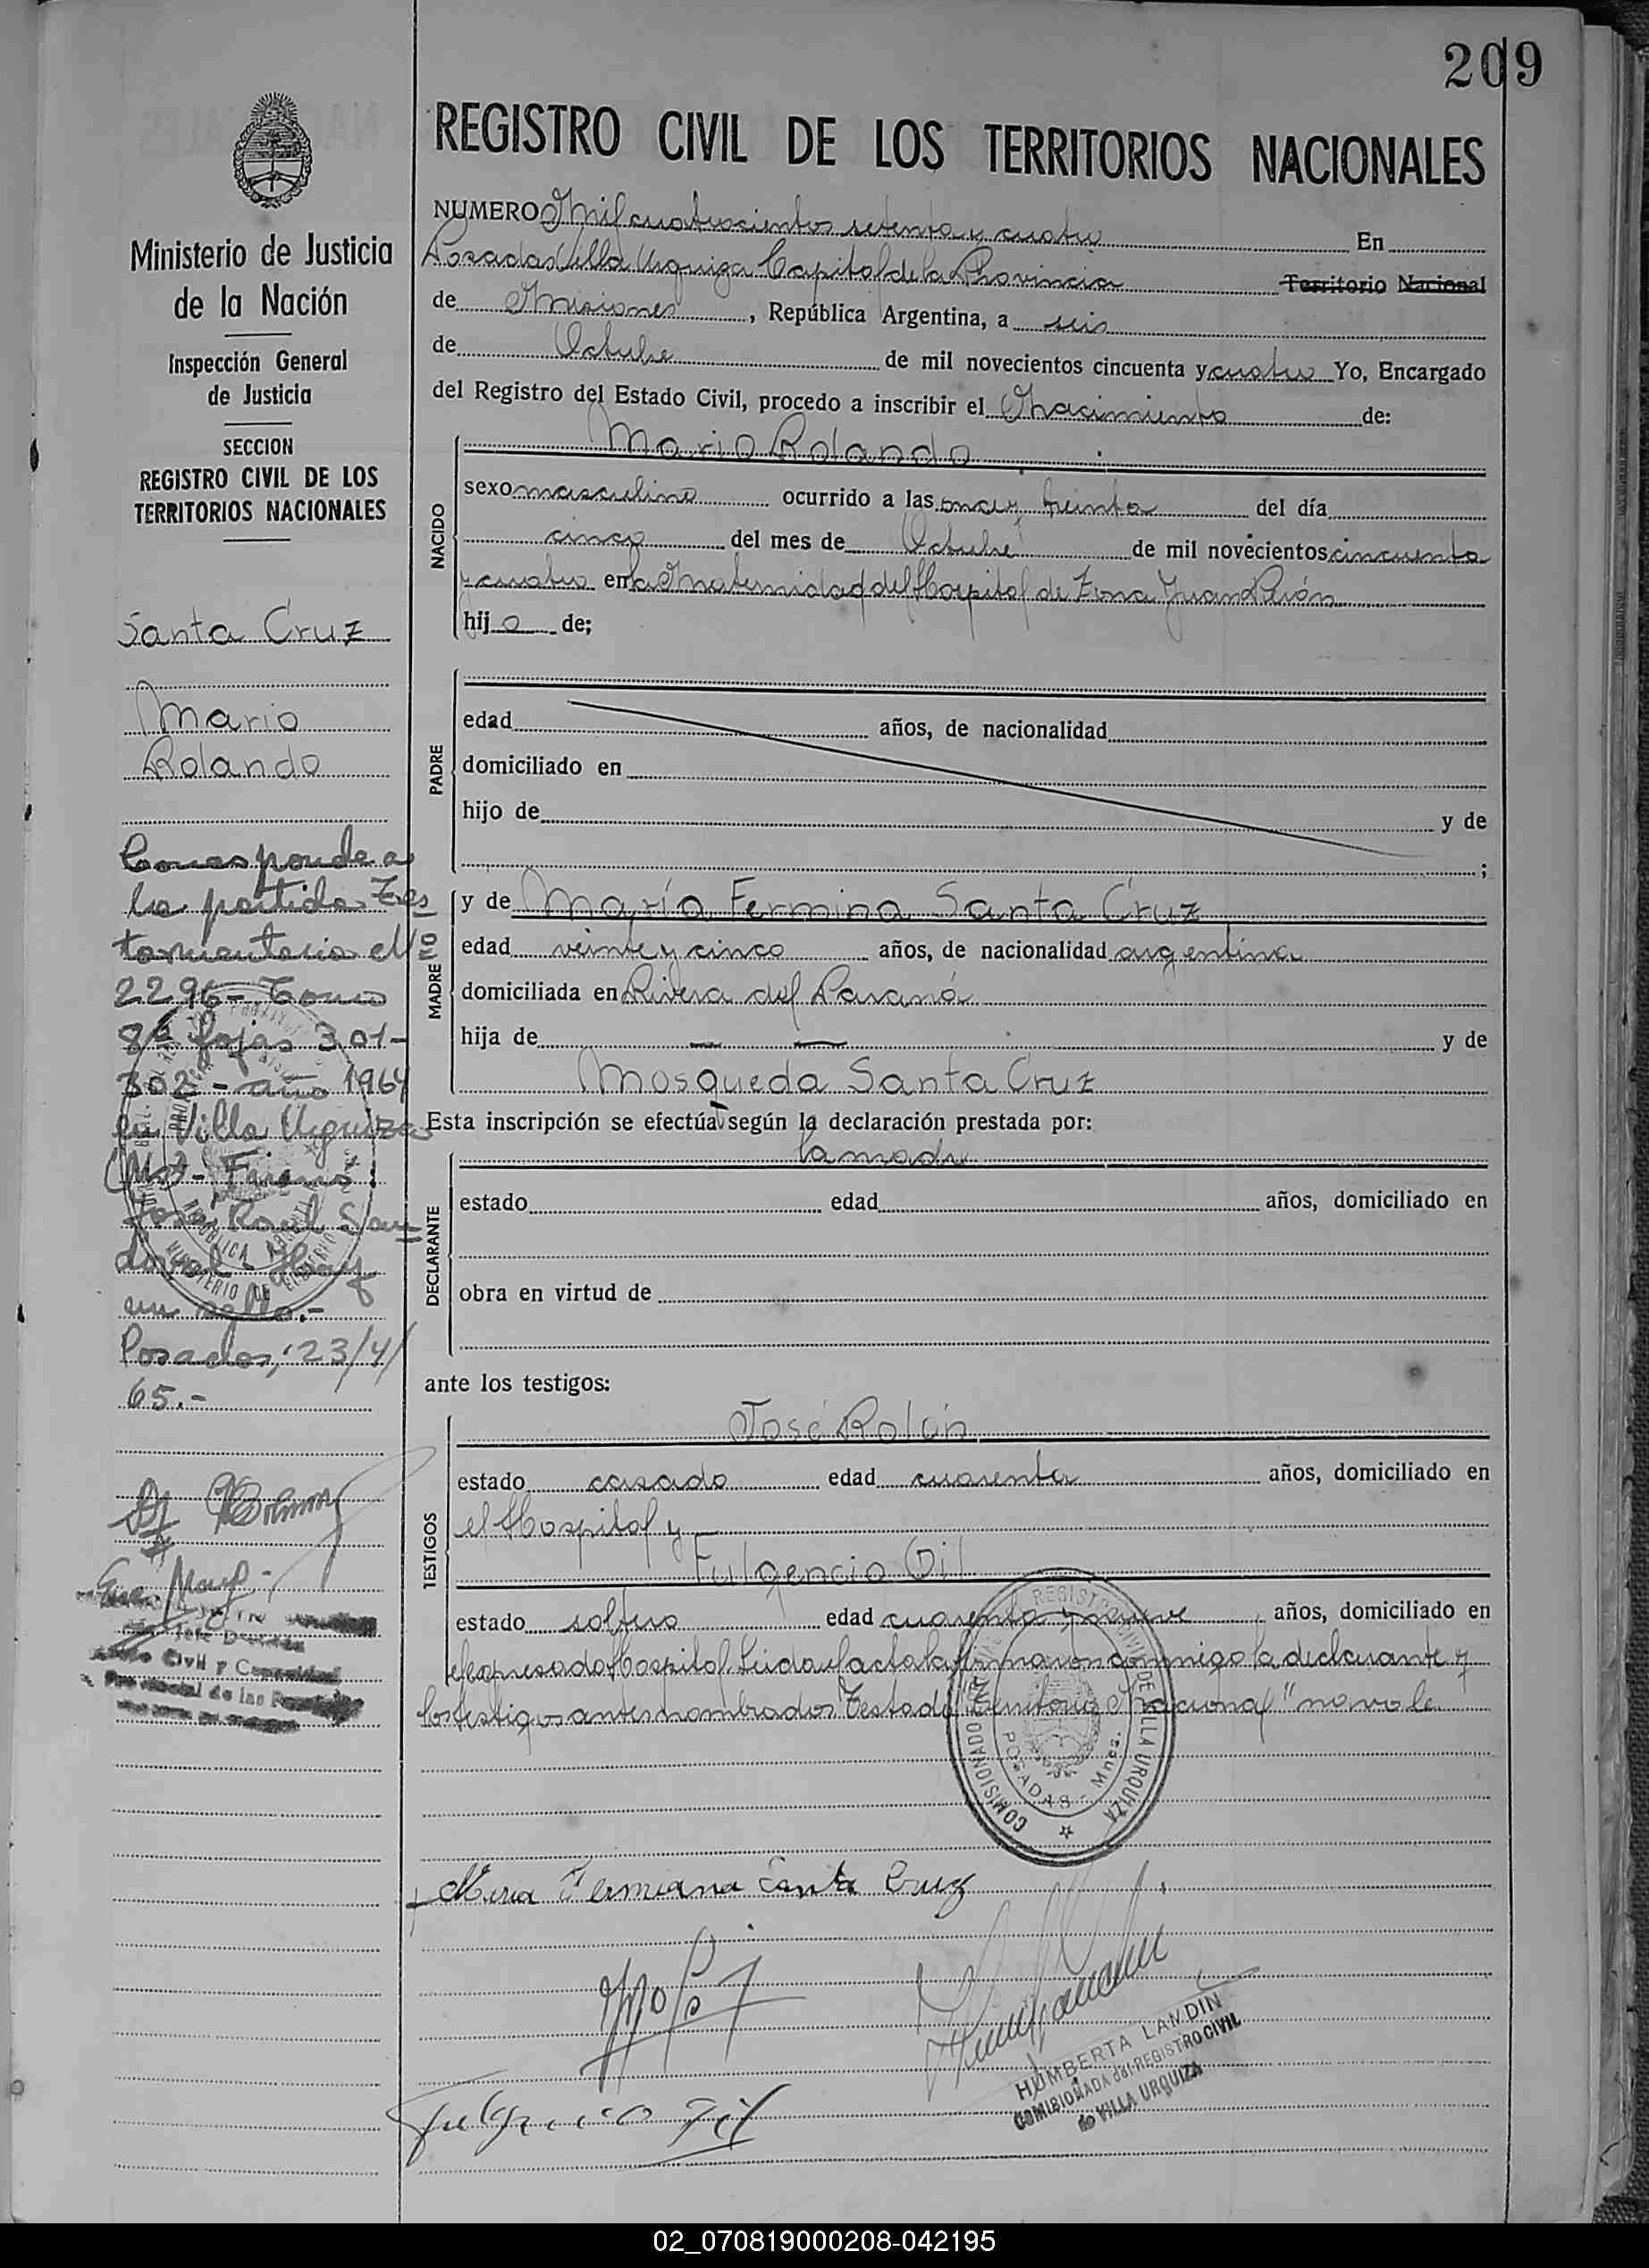 209
REGISTRO CIVIL DE LOS TERRITORIOS NACIONALES
Ministerio de Justicia
de la Nación
Inspección General
de Justicia
SECCION
REGISTRO CIVIL DE LOS
TERRITORIOS NACIONALES
Santa Cruz
Mario
Rolando
Corresponde a
la partida Tes
tamentaria Nº
2296 - Tomo
8º fojas 301-
302 - año 1964
en Villa Urquiza
José Raul San
doval - Hay
un sello.-
Posadas, 23/4/
65.-
NUMERO Mil cuatrocientos setenta y cuatro En
Posadas Villa Urquiza Capital de la Provincia Territorio Nacional
de Misiones, República Argentina, a seis
de Octubre de mil novecientos cincuenta y cuatro Yo, Encargado
del Registro del Estado Civil, procedo a inscribir el Nacimiento de:
NACIDO
Mario Rolando
sexo masculino ocurrido a las once y treinta del día
cinco del mes de Octubre de mil novecientos cincuenta
y cuatro en la Maternidad del Hospital de Zona Juan Perón
hijo de;
PADRE
edad años, de nacionalidad
domiciliado en
hijo de y de
;
MADRE
y de María Fermina Santa Cruz
edad veinte y cinco años, de nacionalidad argentina
domiciliada en Rivera del Paraná
hija de y de
Mosqueda Santa Cruz
Esta inscripción se efectúa según la declaración prestada por:
DECLARANTE
la madre
estado edad años, domiciliado en
obra en virtud de
ante los testigos:
TESTIGOS
José Rolón
estado casado edad cuarenta años, domiciliado en
el Hospital y
Fulgencio Gil
estado soltero edad cuarenta y nueve años, domiciliado en
el expresado Hospital. Leida el acta la firmaron conmigo la declarante y
los testigos antes nombrados Testado "Territorio Nacional" no vale
REGISTRO CIVIL DE VILLA URQUIZA
COMISIONADO
POSADAS - Mnes.
Maria Fermiana Santa Cruz
Fulgencio Gil
HUMBERTA LANDIN
COMISIONADA del REGISTRO CIVIL
de VILLA URQUIZA
02_070819000208-042195